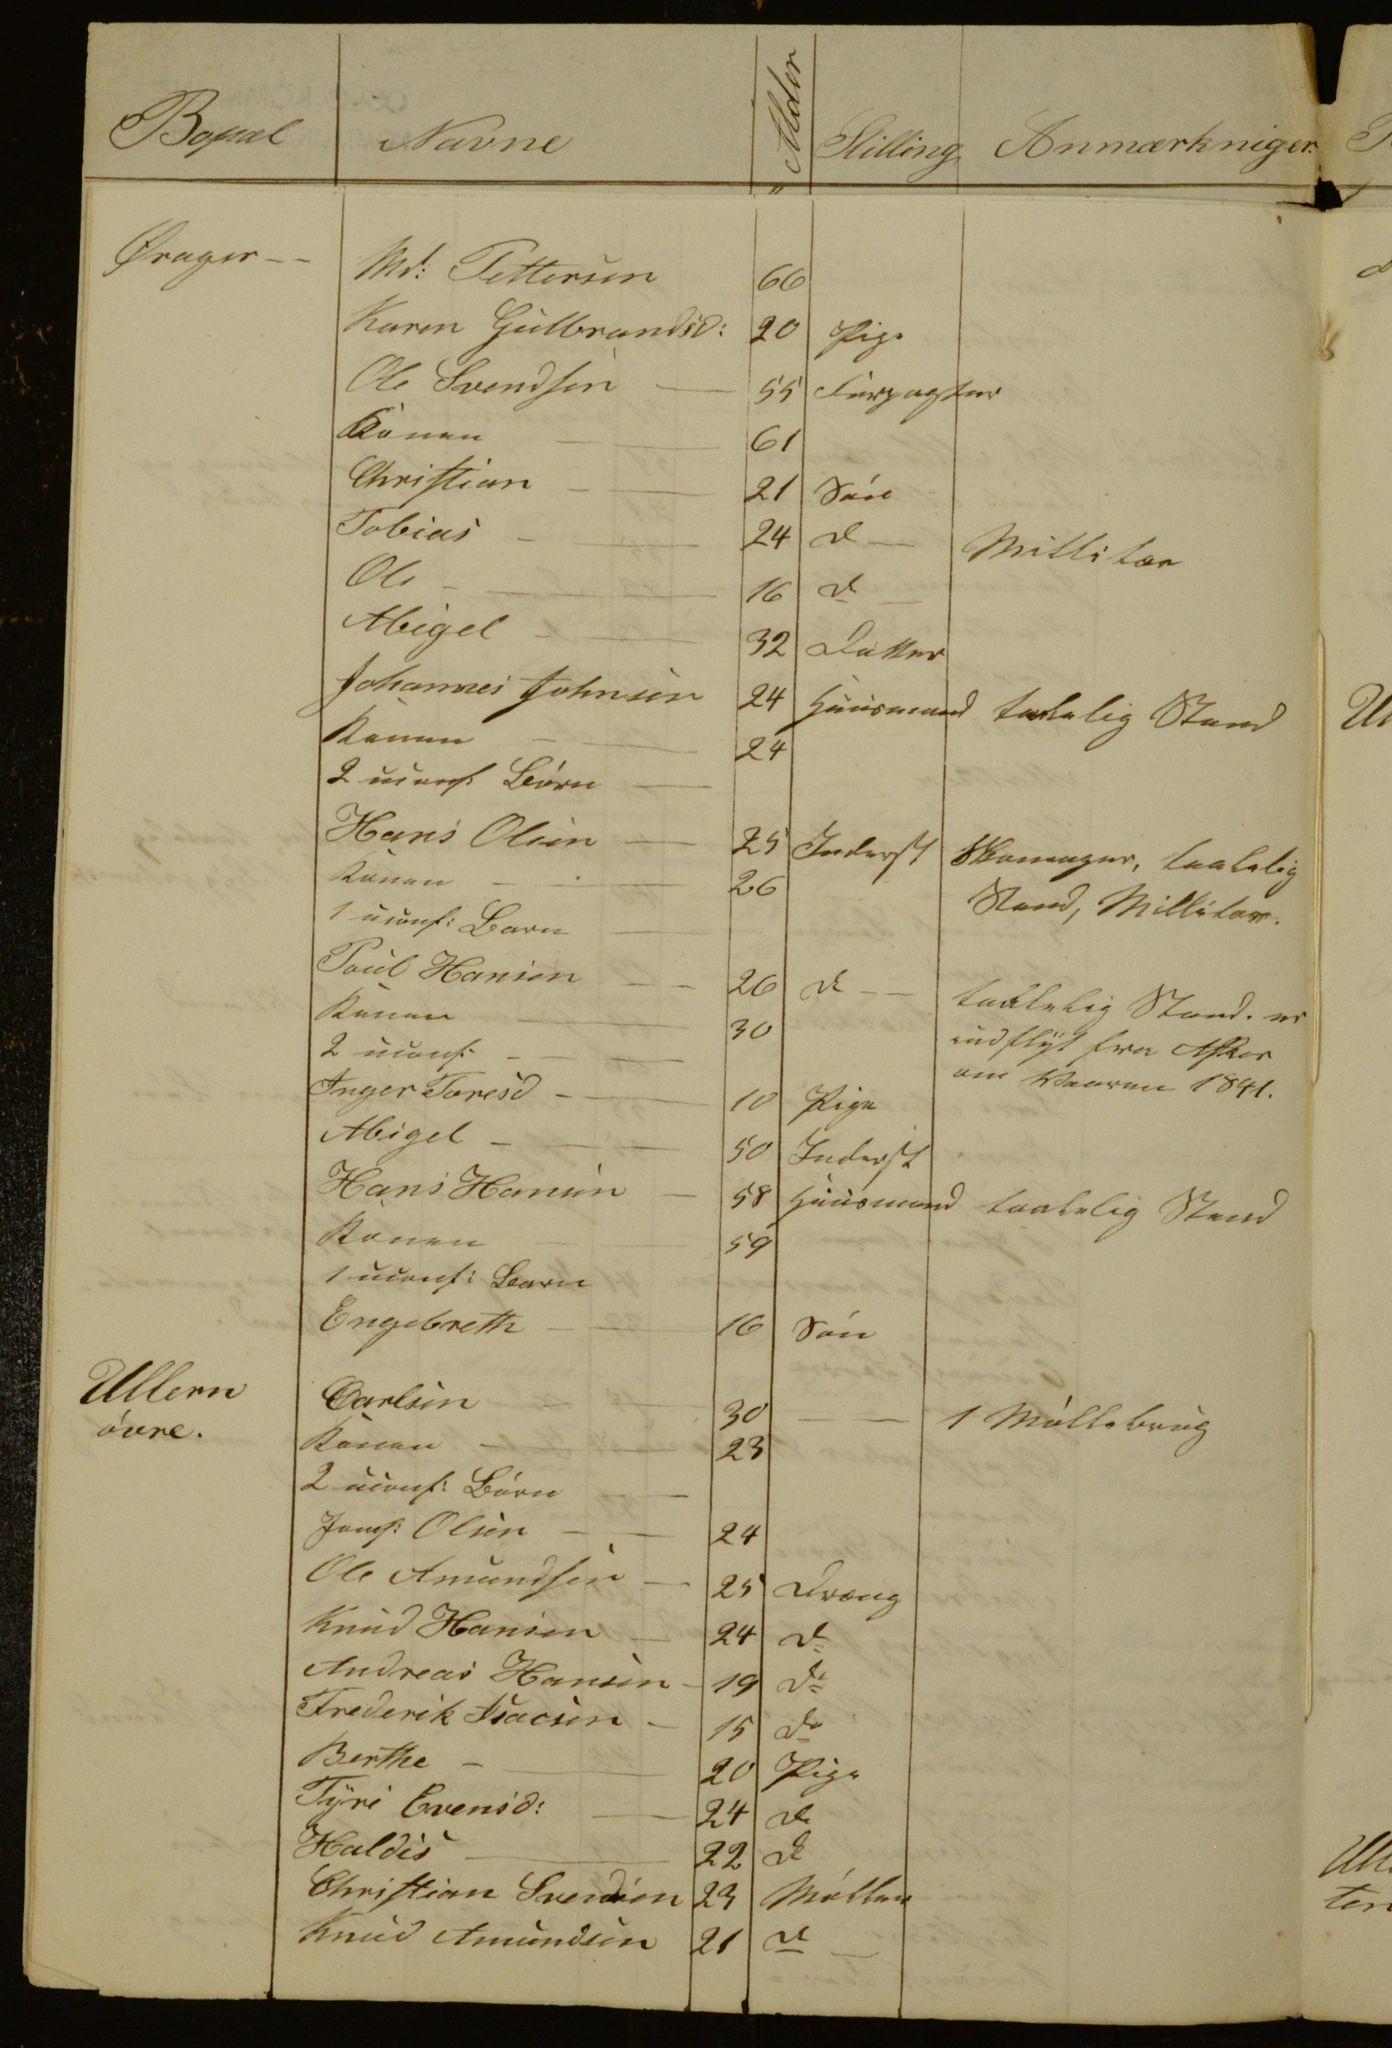 Bopæl Navne Alder Stilling Anmærkniger.
Ørager -- Md: Pettersen 66
Karen Gulbrandsd: 20 Pige
Ole Svendsen 55 Forpagter
Konen 61
Christian 21 Søn
Tobias 24 d Millitær
Ole 16 d
Abigel 32 Datter
Johannes Johnsen 24 Huusmand taalelig Stand
Konen 24
2 uconf. Børn
Hans Olsen 25 Inderst Skomager, taalelig
Konen 26 Stand, Millitær.
1 uconf: Barn
Poul Hansen 26 d taalelig Stand. er
Konen 30 indflyt fra Asker
2 uconf. om Vaaren 1841.
Inger Toresd 10 Pige
Abigel 50 Inderst
Hans Hansen 58 Huusmand taalelig Stand
Konen 59
1 uconf: Barn
Engebreth 16 Søn
Ullern Carlsen 30 1 Møllebrug
övre. Konen 23
2 uconf: Børn
Jomf: Olsen 24
Ole Amundsen 25 Dreng
Knud Hansen 24 d
Andreas Hansen 19 do
Frederik Isacsen 15 do
Berthe 20 Pige
Tyri Evensd: 24 d
Haldis 22 d
Christian Svendsen 23 Møller
Knud Amundsen 21 d